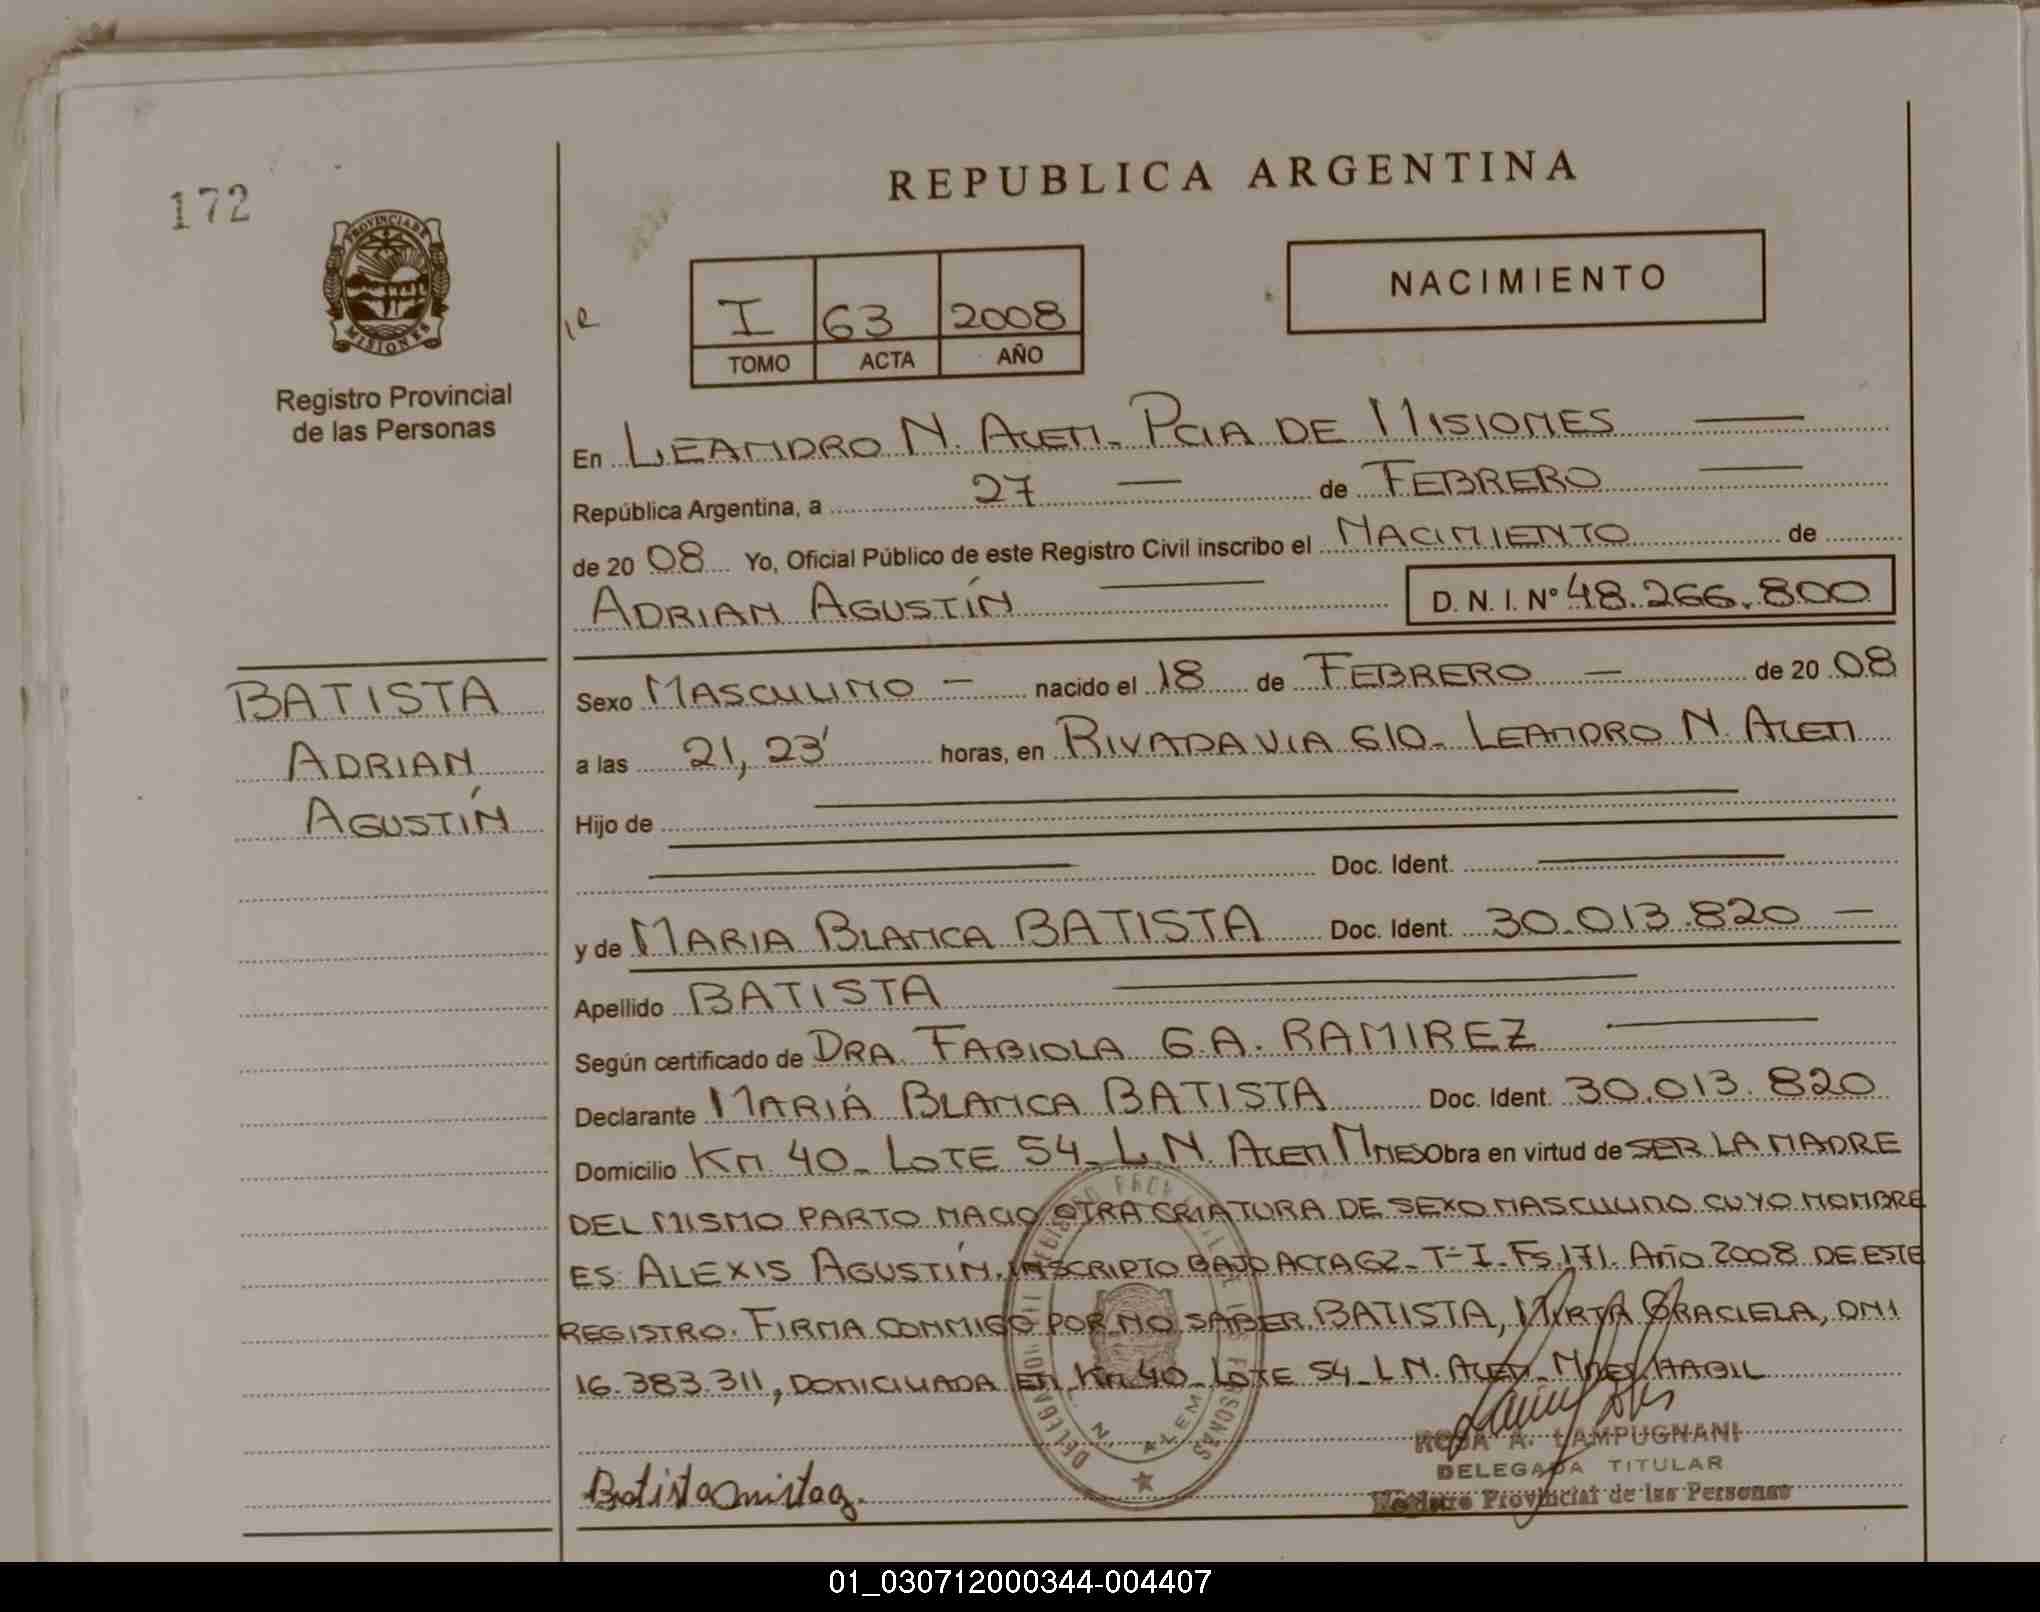 172
REPUBLICA ARGENTINA
PROVINCIA DE
MISIONES
Registro Provincial
de las Personas
I 63 2008
TOMO ACTA AÑO
NACIMIENTO
En LEANDRO N. ALEM - PCIA DE MISIONES
República Argentina, a 27 — de FEBRERO
de 20 08 Yo, Oficial Público de este Registro Civil inscribo el NACIMIENTO de
ADRIAN AGUSTÍN D. N. I. N° 48.266.800
BATISTA
ADRIAN
AGUSTÍN
Sexo MASCULINO — nacido el 18 de FEBRERO — de 20 08
a las 21, 23' horas, en RIVADAVIA 610 - LEANDRO N. ALEM
Hijo de
Doc. Ident.
y de MARIA BLANCA BATISTA Doc. Ident. 30.013.820 —
Apellido BATISTA
Según certificado de DRA. FABIOLA G.A. RAMIREZ
Declarante MARIA BLANCA BATISTA Doc. Ident. 30.013.820
Domicilio KM 40 - LOTE 54 - L.N. ALEM MNES Obra en virtud de SER LA MADRE
DEL MISMO PARTO NACIO OTRA CRIATURA DE SEXO MASCULINO CUYO NOMBRE
ES ALEXIS AGUSTÍN. INSCRIPTO BAJO ACTA 62 - T= I - FS. 171. AÑO 2008 DE ESTE
REGISTRO. FIRMA CONMIGO POR NO SABER BATISTA, MIRTA GRACIELA, DNI
16.383.311, DOMICILIADA EN KM 40 - LOTE 54 - L N. ALEM - MNES HABIL
N. ALEM
ROSA A. LAMPUGNANI
DELEGADA TITULAR
Registro Provincial de las Personas
Batista mirta g.
01_030712000344-004407